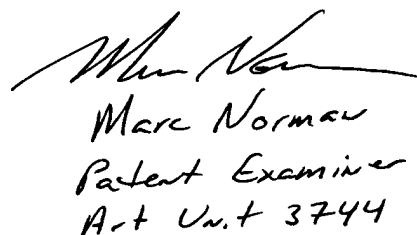 Marc Norman
Marc Norman
Patent Examiner
Art Unit 3744